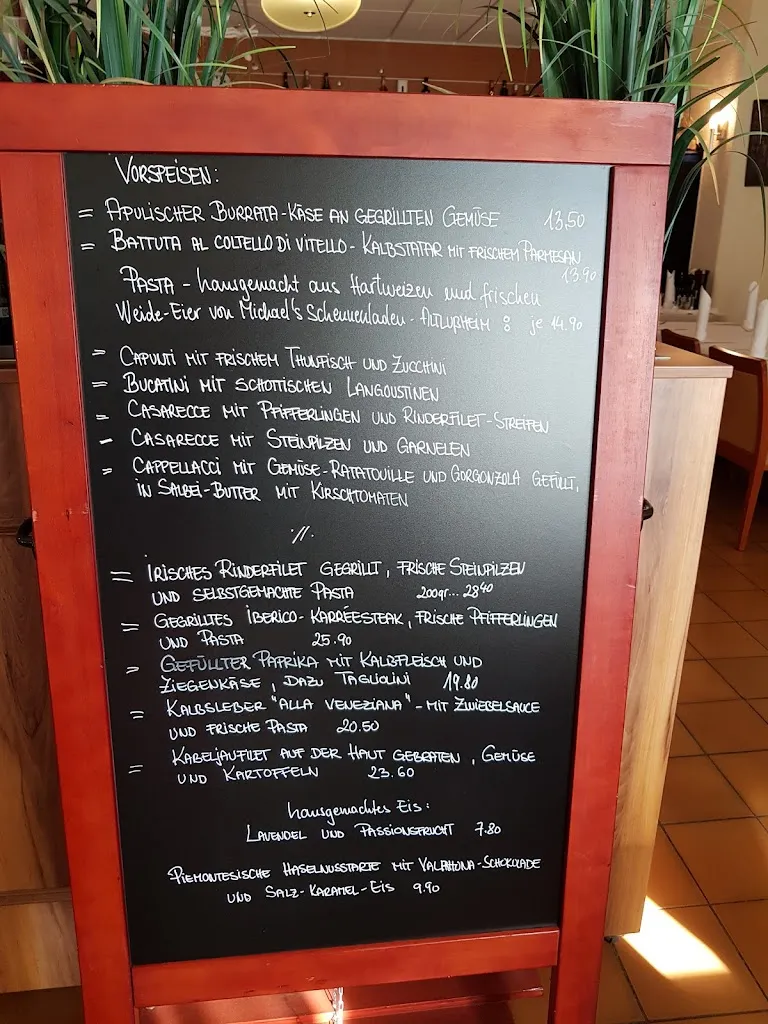 VORSPEISEN:
= APULISCHER BURRATA-KÄSE AN GEGRILLTEN GEMÜSE 13,50
= BATTUTA AL COLTELLO DI VITELLO - KALBSTATAR MIT FRISCHEM PARMESAN
13.90
PASTA - hausgemacht aus Hartweizen und frischen
Weide-Eier von Michael's Scheunenladen - ALTLUßHEIM : je 14.90
= CAPUNTI MIT FRISCHEM THUNFISCH UND ZUCCHINI
= BUCATINI MIT SCHOTTISCHEN LANGOUSTINEN
= CASARECCE MIT PFIFFERLINGEN UND RINDERFILET-STREIFEN
- CASARECCE MIT STEINPILZEN UND GARNELEN
= CAPPELLACCI MIT GEMÜSE-RATATOUILLE UND GORGONZOLA GEFÜLLT,
IN SALBEI-BUTTER MIT KIRSCHTOMATEN
·//.
= IRISCHES RINDERFILET GEGRILLT, FRISCHE STEINPILZEN
UND SELBSTGEMACHTE PASTA 200gr... 28⁴⁰
= GEGRILLTES IBERICO-KARRÉESTEAK, FRISCHE PFIFFERLINGEN
UND PASTA 25.90
= GEFÜLLTER PAPRIKA MIT KALBFLEISCH UND
ZIEGENKÄSE, DAZU TAGLIOLINI 19.80
= KALBSLEBER "ALLA VENEZIANA" - MIT ZWIEBELSAUCE
UND FRISCHE PASTA 20.50
= KABELJAUFILET AUF DER HAUT GEBRATEN, GEMÜSE
UND KARTOFFELN 23.60
hausgemachtes Eis:
LAVENDEL UND PASSIONSFRUCHT 7.80
PIEMONTESISCHE HASELNUSSTARTE MIT VALRHONA-SCHOKOLADE
UND SALZ-KARAMEL-EIS 9.90